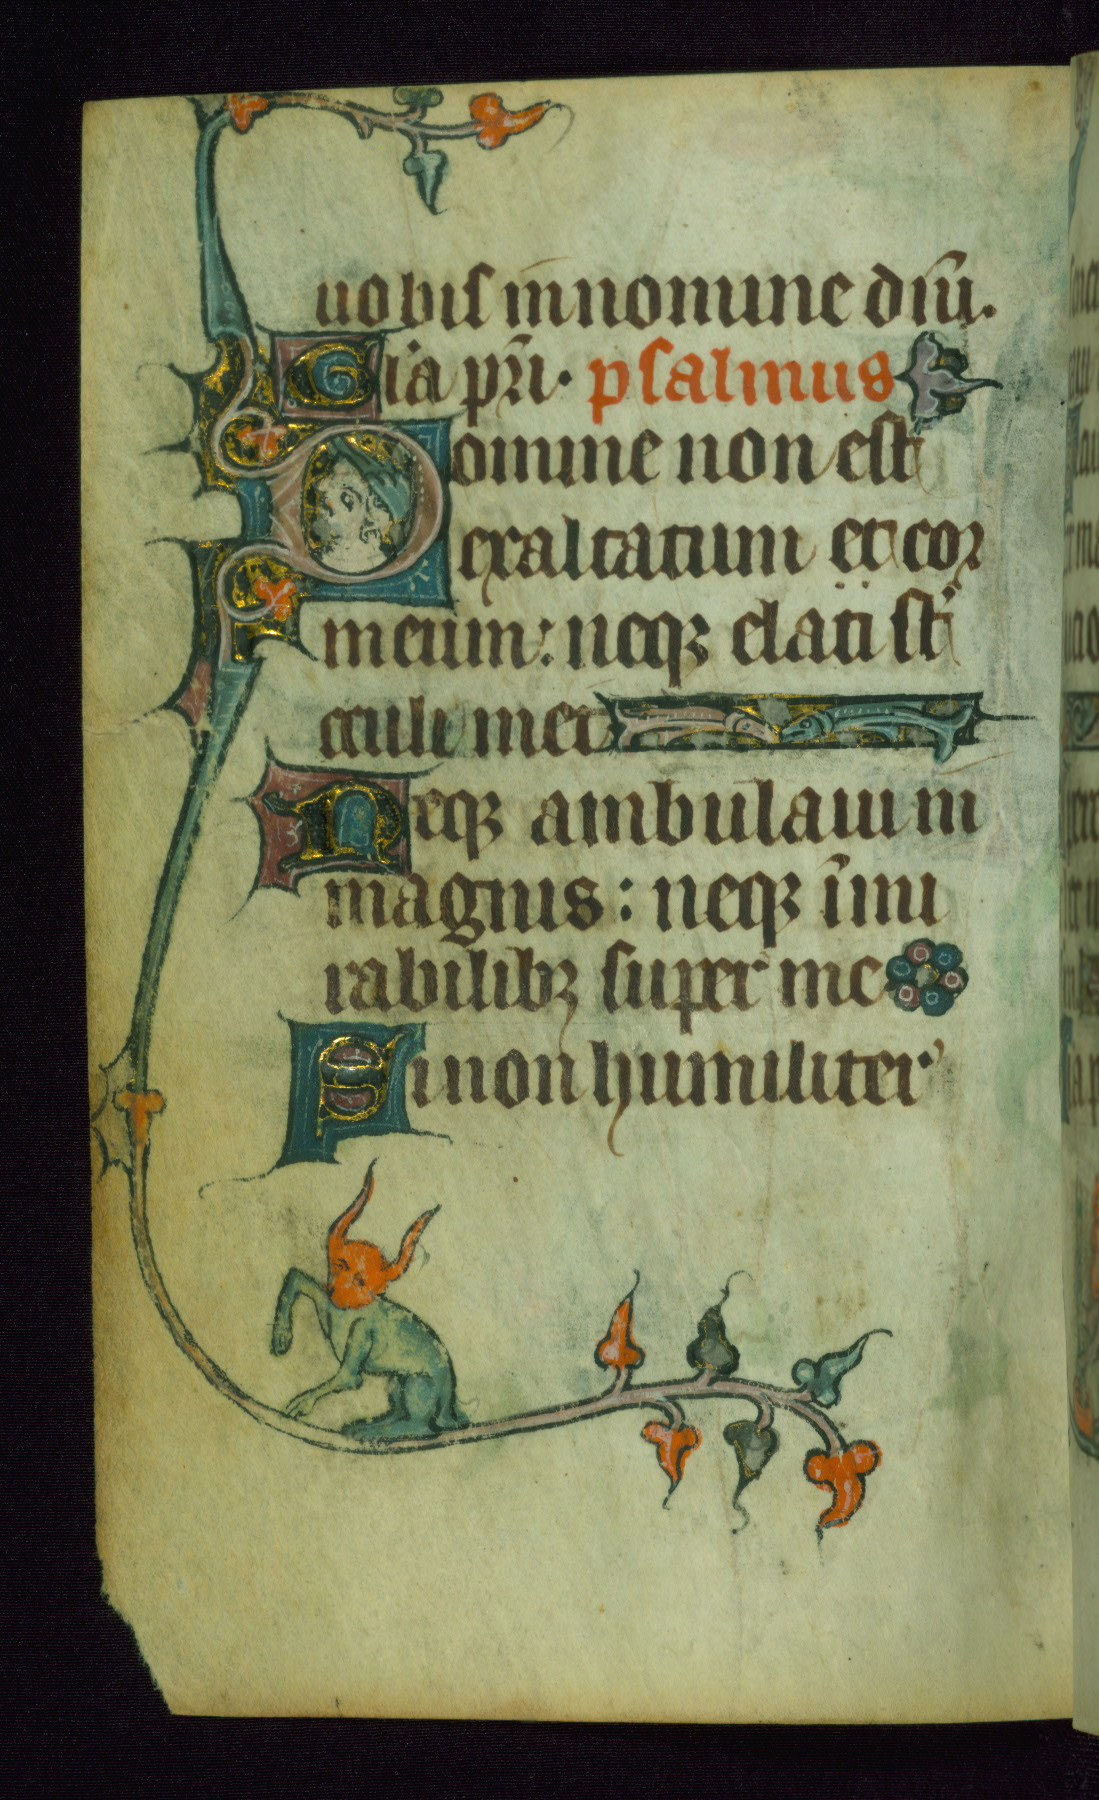 uobis in nomine dn̄i.
Gl'a pr̄i. psalmus
Domine non est
exaltatum et cor
meum: neqȝ elati st̄
oculi mei
Neqȝ ambulaui in
magnis: neqȝ ī mi
rabilibȝ super me
Si non humiliter